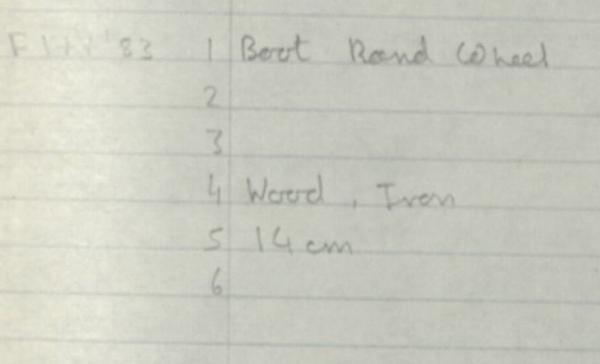 '83 1 Boot Rand Wheel
2
3
4 Wood, Iron
5 14 cm
6